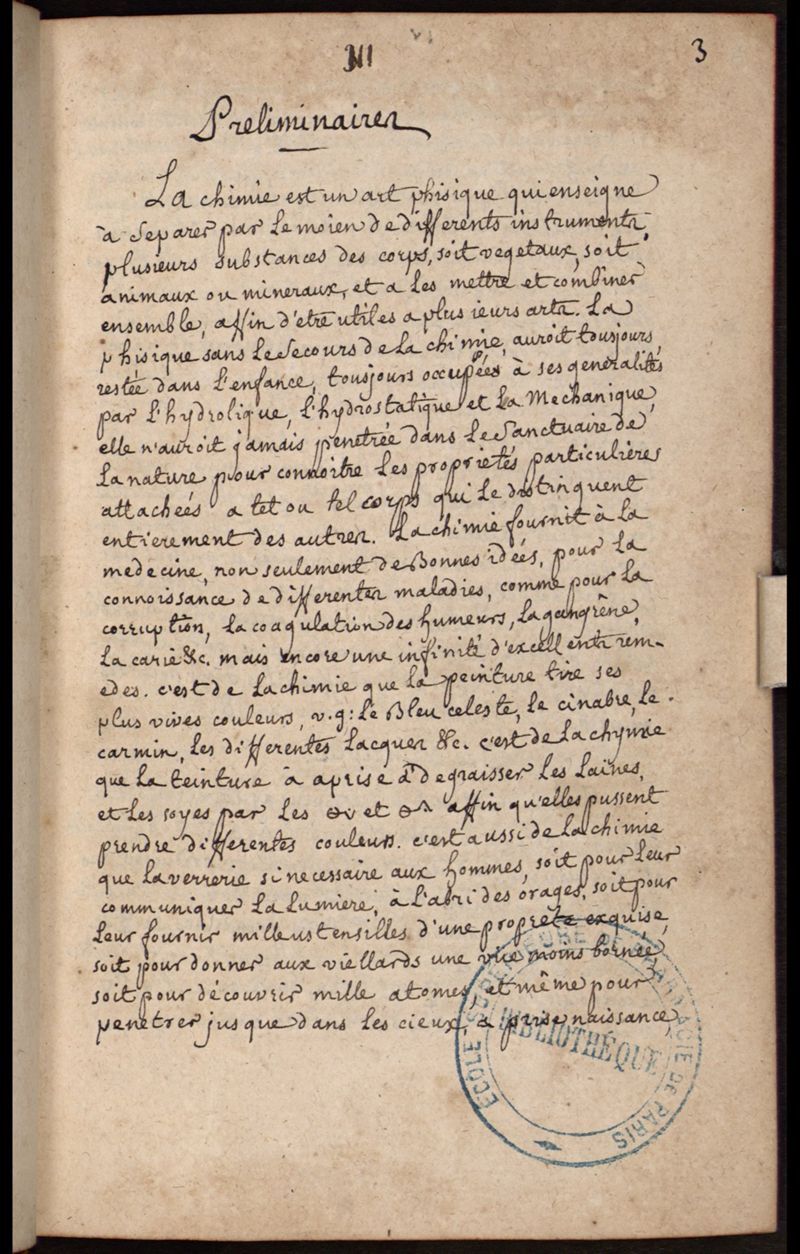 III
3
Preliminaires
La chimie est un art phisique qui enseigne
a separer par le moien de differents instruments,
plusieurs substances des corps, soit vegetaux, soit
animaux ou mineraux, et a les mettre et combiner
ensemble, affin d'etre utiles a plusieurs arts. La
phisique sans le secours de la chimie, auroit tousjours
restée dans l'enfance, tousjours occupées à ses generalités
par l'hydrolique, l'hydrostatique et la Mechanique,
elle n'auroit jamais penetrée dans le sanctuaire de
la nature pour connoitre les proprietés particulières
attacheés a tel ou tel corps qui le distinquent
entierement des autres. La chimie fournit à la
medecine, non seulement de Bonnes idées, pour la
connoissance de differentes maladies, comme pour la
corruption, la coagulation des humeurs, la gangrène,
la carie &c. mais encore une infinité d'excellents rem-
edes. c'est de la chimie que la peinture tire ses
plus vives couleurs, v.g: le Bleu celeste, le cinabre, le
carmin, les differentes lacques &c. c'est de la chymie
que la teinture à aprise à degraisser les laines,
et les soyes par les et affin qu'elles pussent
prendre differentes couleurs. c'est aussi de la chimie
que la verrerie si necessaire aux hommes, soit pour leur
communiquer la lumiere, à l'abri des orages, soit pour
leur fournir mille ustensilles d'une propreté exquise,
soit pour donner aux viellards une vüe moins bornée,
soit pour découvrir mille atomes, et même pour
penetrer jusque dans les cieux, à prise naissance,
ECOLE DE PARIS
BIBLIOTHÈQUE